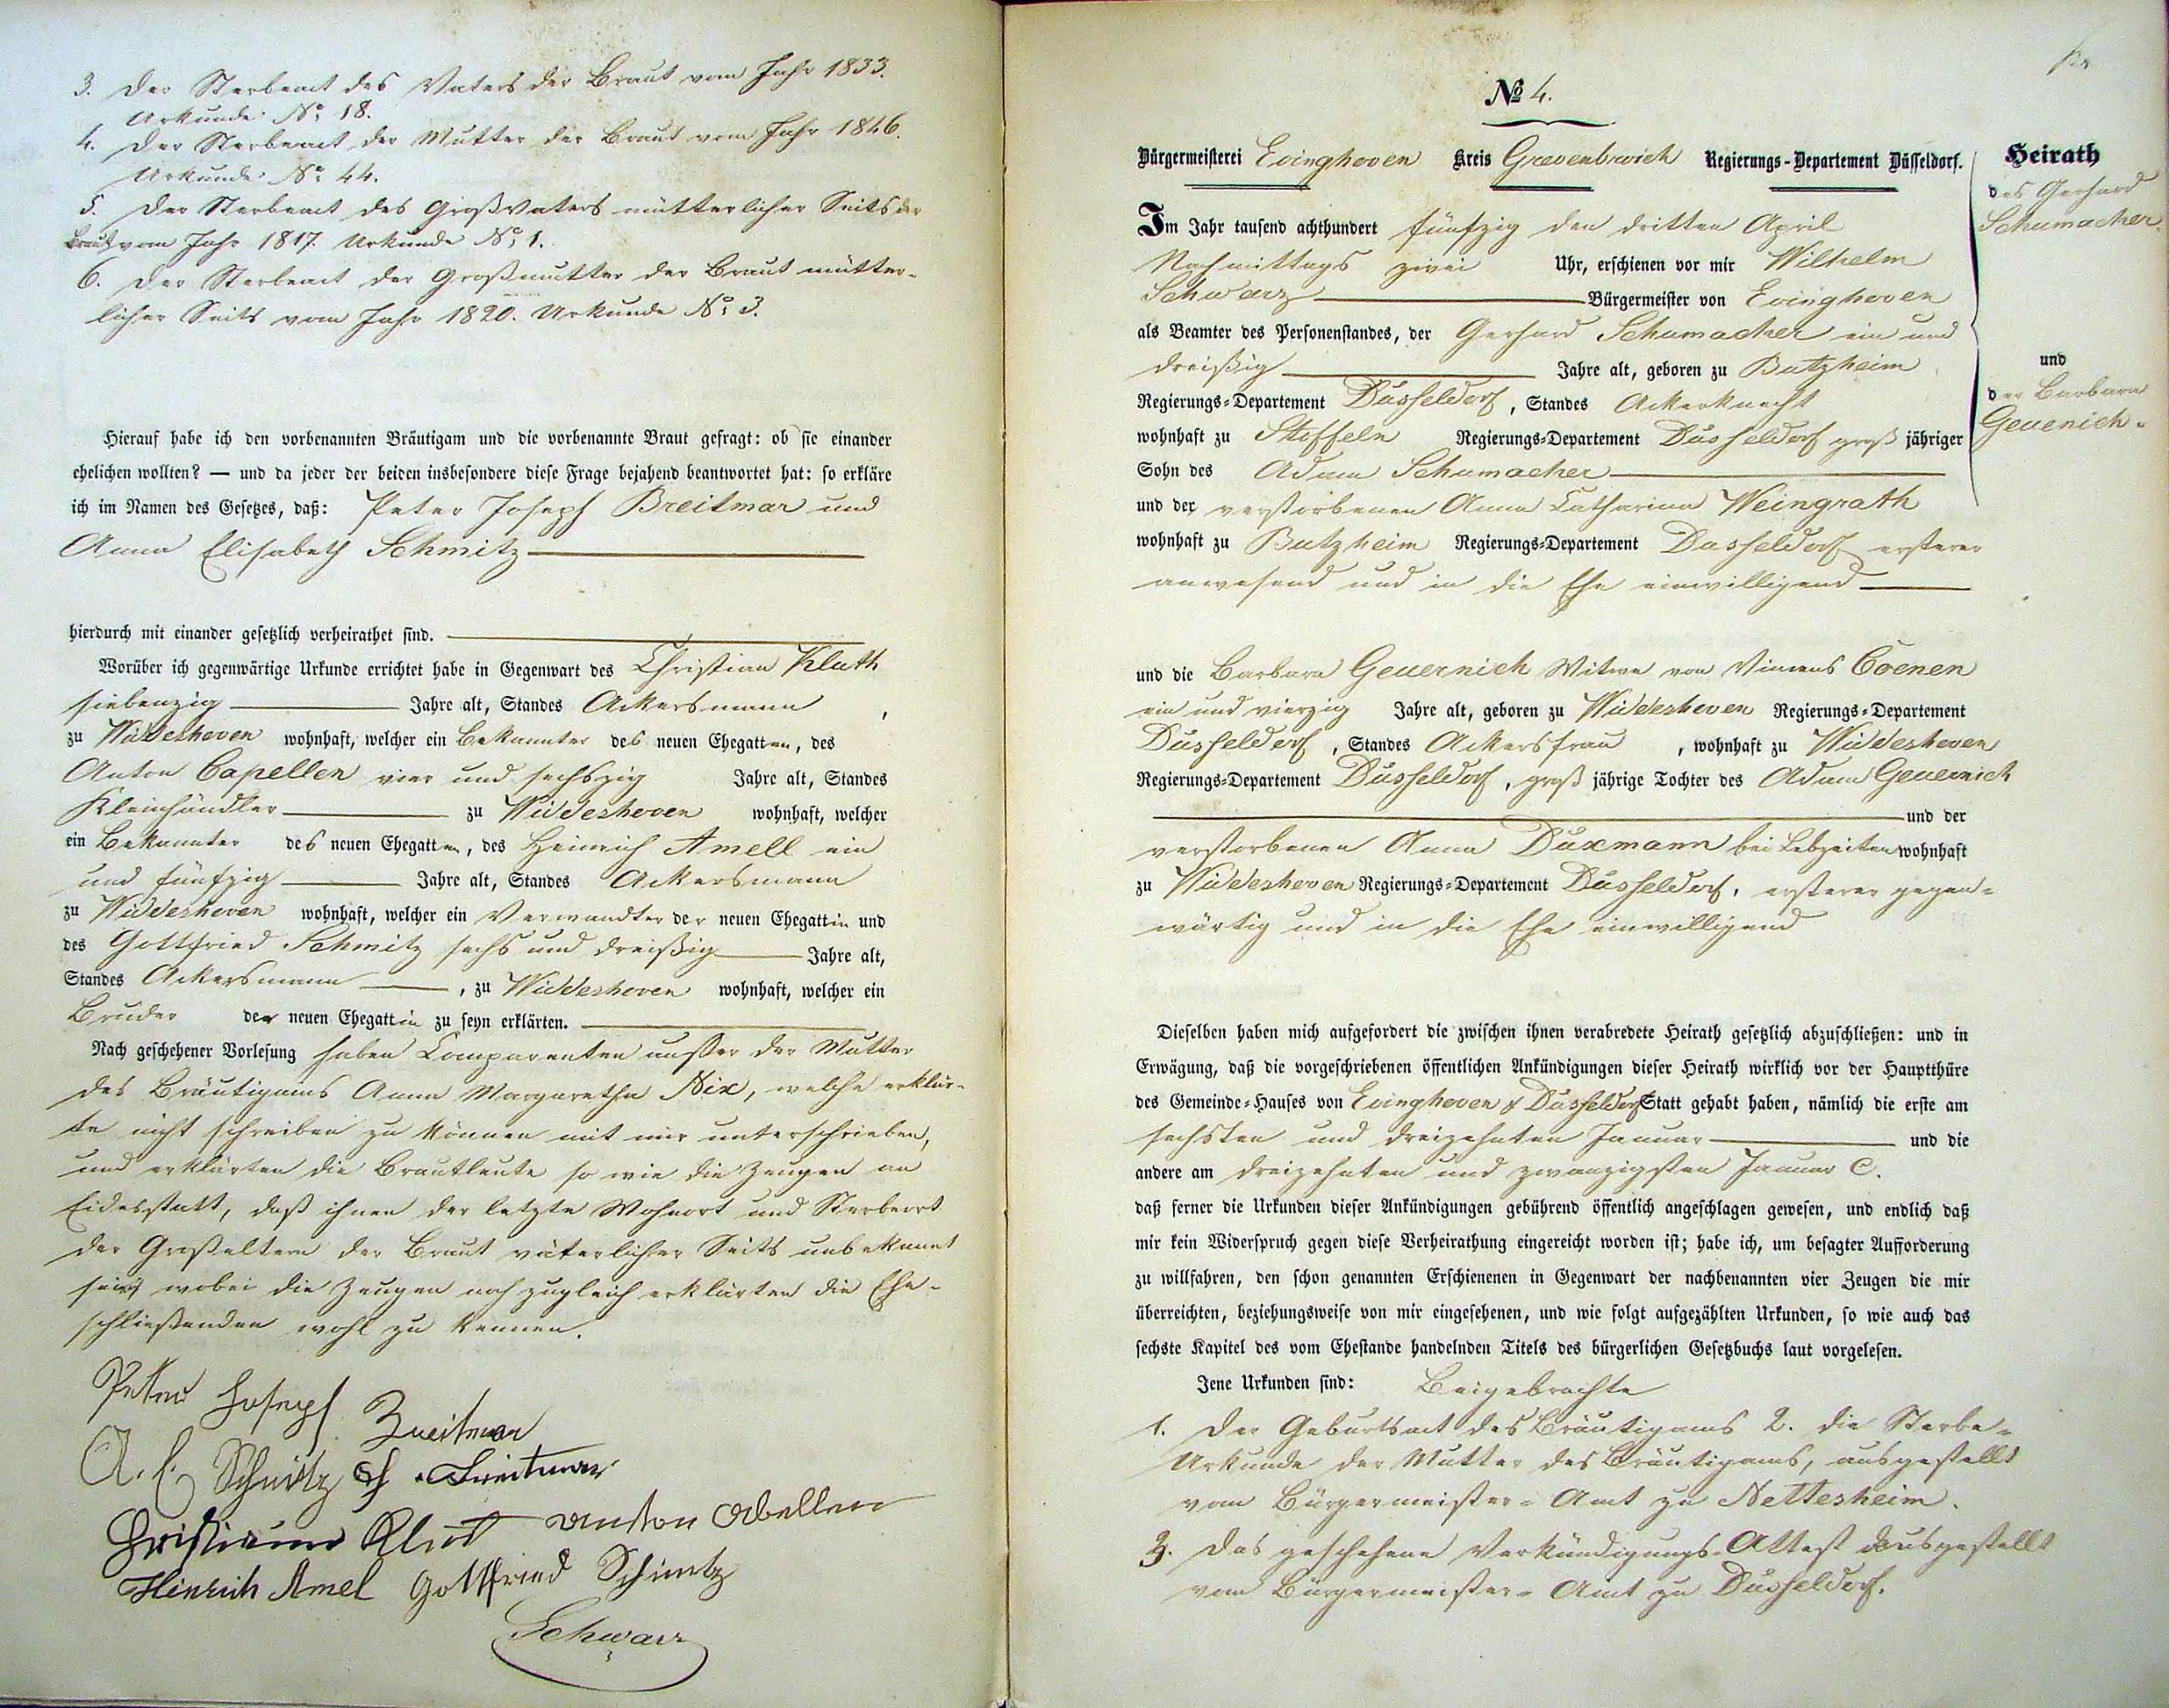 3. Der Sterbeact des Vaters der Braut vom Jahr 1833.
Urkunde No 18.
4. Der Sterbeact der Mutter der Braut vom Jahr 1846.
Urkunde No 44.
5. Der Sterbeact des Großvaters mütterlicher Seits der
Braut vom Jahr 1817. Urkunde No 1.
6. Der Sterbeact der Großmutter der Braut mütter-
licher Seits vom Jahr 1820. Urkunde No 3.
Hierauf habe ich den vorbenannten Bräutigam und die vorbenannte Braut gefragt: ob sie einander
ehelichen wollten? — und da jeder der beiden insbesondere diese Frage bejahend beantwortet hat: so erkläre
ich im Namen des Gesetzes, daß: Peter Joseph Breitmar und
Anna Elisabeth Schmitz
hierdurch mit einander gesetzlich verheirathet sind.
Worüber ich gegenwärtige Urkunde errichtet habe in Gegenwart des Christian Kluth
siebenzig Jahre alt, Standes Ackersmann,
zu Widdeshoven wohnhaft, welcher ein Bekannter des neuen Ehegatten, des
Anton Capellen vier und sechszig Jahre alt, Standes
Kleinhändler zu Widdeshoven wohnhaft, welcher
ein Bekannter des neuen Ehegatten, des Heinrich Amell ein
und fünfzig Jahre alt, Standes Ackersmann
zu Widdeshoven wohnhaft, welcher ein Verwandter der neuen Ehegattin und
des Gottfried Schmitz sechs und dreißig Jahre alt,
Standes Ackersmann, zu Widdeshoven wohnhaft, welcher ein
Bruder der neuen Ehegattin zu seyn erklärten.
Nach geschehener Vorlesung haben Comparenten ausser der Mutter
des Bräutigams Anna Margaretha Nix, welche erklär-
te nicht schreiben zu können mit mir unterschrieben,
und erklärten die Brautleute so wie die Zeugen an
Eidesstatt, daß ihnen der letzte Wohnort und Sterbeort
der Großeltern der Braut väterlicher Seits unbekannt
sei; wobei die Zeugen noch zugleich erklärten die Ehe-
schließenden wohl zu kennen.
Peter Joseph Breitmar
A. E. Schmitz Breitmar
Christian Klut Anton Cabellen
Hinrich Amel Gottfried Schmitz
Schwarz
No 4.
Bürgermeisterei Evinghoven Kreis Grevenbroich Regierungs-Departement Düsseldorf.
Heirath
des Gerhard
Schumacher
und
der Barbara
Geuenich.
Im Jahr tausend achthundert fünfzig den dritten April
Nachmittags zwei Uhr, erschienen vor mir Wilhelm
Schwarz Bürgermeister von Evinghoven
als Beamter des Personenstandes, der Gerhard Schumacher ein und
dreißig Jahre alt, geboren zu Butzheim
Regierungs-Departement Düsseldorf, Standes Ackerknecht
wohnhaft zu Stoffeln Regierungs-Departement Düsseldorf groß jähriger
Sohn des Adam Schumacher
und der verstorbenen Anna Catharina Weingrath
wohnhaft zu Butzheim Regierungs-Departement Düsseldorf ersterer
anwesend und in die Ehe einwilligend
und die Barbara Geuernich Witwe von Vincens Coenen
ein und vierzig Jahre alt, geboren zu Widdeshoven Regierungs-Departement
Düsseldorf, Standes Ackersfrau, wohnhaft zu Widdeshoven
Regierungs-Departement Düsseldorf, groß jährige Tochter des Adam Geuernich
und der
verstorbenen Anna Duxmann bei Lebzeiten wohnhaft
zu Widdeshoven Regierungs-Departement Düsseldorf, ersterer gegen-
wärtig und in die Ehe einwilligend
Dieselben haben mich aufgefordert die zwischen ihnen verabredete Heirath gesetzlich abzuschließen: und in
Erwägung, daß die vorgeschriebenen öffentlichen Ankündigungen dieser Heirath wirklich vor der Hauptthüre
des Gemeinde-Hauses von Evinghoven & Düsseldorf Statt gehabt haben, nämlich die erste am
sechsten und dreizehnten Januar und die
andere am dreizehnten und zwanzigsten Januar c.
daß ferner die Urkunden dieser Ankündigungen gebührend öffentlich angeschlagen gewesen, und endlich daß
mir kein Widerspruch gegen diese Verheirathung eingereicht worden ist; habe ich, um besagter Aufforderung
zu willfahren, den schon genannten Erschienenen in Gegenwart der nachbenannten vier Zeugen die mir
überreichten, beziehungsweise von mir eingesehenen, und wie folgt aufgezählten Urkunden, so wie auch das
sechste Kapitel des vom Ehestande handelnden Titels des bürgerlichen Gesetzbuchs laut vorgelesen.
Jene Urkunden sind: Beigebrachte
1. Der Geburtsact des Bräutigams 2. die Sterbe-
Urkunde der Mutter des Bräutigams, ausgestellt
vom Bürgermeister-Amt zu Nettesheim.
3. Das geschehene Verkündigungs-Attest ausgestellt
vom Bürgermeister-Amt zu Düsseldorf.